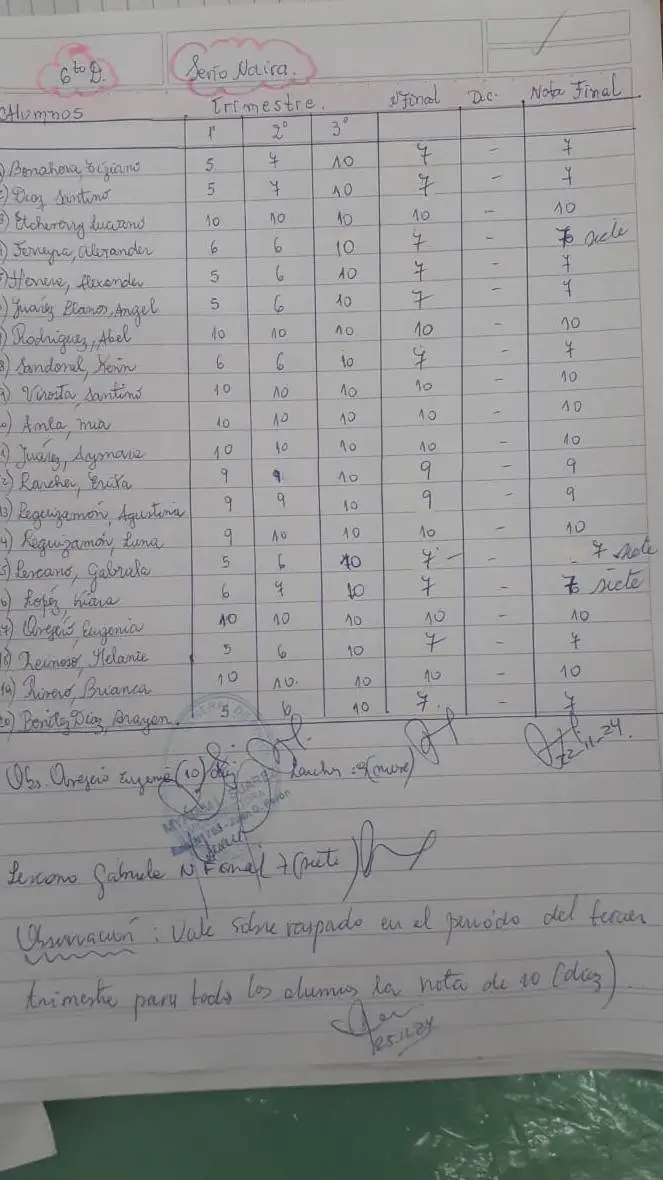 6to D. Serio Naira.
Alumnos Trimestre. N Final Dic. Nota Final
1° 2° 3°
5 7 10 7 - 7
) Diaz Santino 5 7 10 7 - 7
3) Etcheverry Luciano 10 10 10 10 - 10
) Ferreyra, Alexander 6 6 10 7 - 7 siete
Alexander 5 6 10 7 - 7
) Juaréz Llanos, Angel 5 6 10 7 - 7
) Rodriguez, Abel 10 10 10 10 - 10
8) Sandoval, Kevin 6 6 10 7 - 7
9) Virosta Santino 10 10 10 10 - 10
0) mia 10 10 10 10 - 10
1) Juaréz, Aymara 10 10 10 10 - 10
2) Erika 9 9 10 9 - 9
13) Leguizamón, Agustina 9 9 10 9 - 9
4) Leguizamón, Luna 9 10 10 10 - 10
5) Lescano, Gabriela 5 6 10 7 - - 7 siete
6) Lopéz, Kiara 6 7 10 7 - 7 siete
7) Eugenia 10 10 10 10 - 10
18) Reinoso, Melanie 5 6 10 7 - 7
19) Rivero, Brianca 10 10. 10 10 - 10
20) Benitez Diaz, Brayan. 5 6 10 7. - 7
Obs. Eugenia (10) diez :9(nueve)
11.24.
Lescano Gabriela N Final 7 (siete)
Observación : Vale sobre raspado en el período del tercer
trimestre para todos los alumnos la nota de 10 (diez).
25.11.24